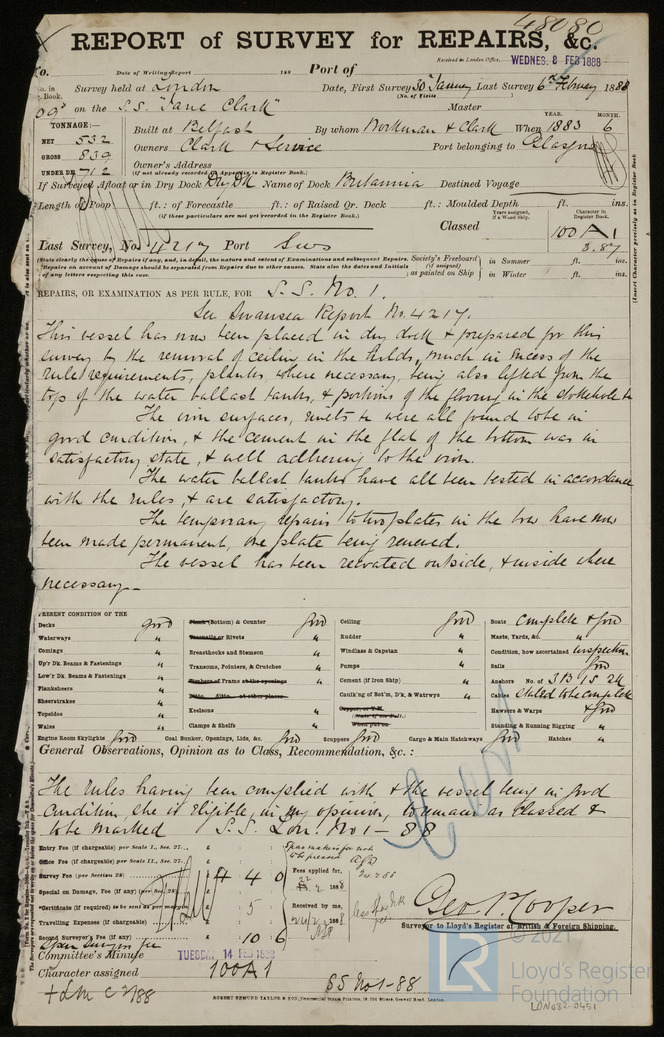 48080
REPORT of SURVEY for REPAIRS, &c.
Received in London Office, WEDNES. 8 FEB 1888
No. Date of Writing Report 188 Port of
No. in Reg. Book. Survey held at London Date, First Survey 30th January Last Survey 6th February 1888
(No. of Visits)
on the S.S. "Jane Clark" Master
TONNAGE:—
NET 532
GROSS 839
UNDER DK 712
Built at Belfast By whom Workman & Clark When 1883 6
YEAR. MONTH.
Owners Clark & Service Port belonging to Glasgow
Owner's Address
(if not already recorded in Appendix to Register Book.)
If Surveyed Afloat or in Dry Dock Dry Dk Name of Dock Britannia Destined Voyage
Length of Poop ft.: of Forecastle ft.: of Raised Qr. Deck ft.: Moulded Depth ft. ins.
(if these particulars are not yet recorded in the Register Book.)
Classed
Years assigned, if a Wood Ship.
Character in Register Book
100 A1
3.87
Last Survey, No. 4217 Port Sws
(State clearly the cause of Repairs if any, and, in detail, the nature and extent of Examinations and subsequent Repairs.
Repairs on account of Damage should be separated from Repairs due to other causes. State also the dates and Initials
of any letters respecting this case.
Society's Freeboard (if assigned) as painted on Ship
in Summer ft. ins.
in Winter ft. ins.
(Insert Character precisely as in Register Book
REPAIRS, OR EXAMINATION AS PER RULE, FOR S.S. No. 1.
See Swansea Report No. 4217.
This vessel has now been placed in dry dock & prepared for this
survey by the removal of ceiling in the holds, much in excess of the
rule requirements, planks, where necessary, being also lifted from the
top of the water ballast tanks, & portions of the flooring in the stokehole &c
The iron surfaces, rivets &c were all found to be in
good condition, & the cement in the flat of the bottom was in
satisfactory state, & well adhering to the iron.
The water ballast tanks have all been tested in accordance
with the rules, & are satisfactory.
The temporary repairs to two plates in the bow have now
been made permanent, one plate being renewed.
The vessel has been recoated outside, & inside where
necessary.
PRESENT CONDITION OF THE
Decks good
Waterways "
Comings "
Up'r Dk. Beams & Fastenings "
Low'r Dk. Beams & Fastenings "
Planksheers "
Sheerstrakes "
Topsides "
Wales "
Engine Room Skylights good
Plank (Bottom) & Counter good
Treenails or Rivets "
Breasthooks and Stemson "
Transoms, Pointers, & Crutches "
Timbers or Frames at the openings "
Ditto ditto at other places
Keelsons "
Clamps & Shelfs "
Coal Bunker, Openings, Lids, &c. good
Ceiling good
Rudder "
Windlass & Capstan "
Pumps "
Cement (if Iron Ship) "
Caulk'ng of Bot'm, D'k, & Watrwys "
Copper, or Y.M.
(State if on Felt.)
When put on
Scuppers good Cargo & Main Hatchways good
Boats Complete & good
Masts, Yards, &c. "
Condition, how ascertained inspection
Sails good
Anchors No. of 3B 1S 2K
Cables stated to be complete
Hawsers & Warps & good
Standing & Running Rigging "
Hatches "
General Observations, Opinion as to Class, Recommendation, &c. :—
The rules having been complied with & the vessel being in good
condition, she is eligible, in my opinion, to remain as classed &
to be marked S.S. Lon. No 1 - 88
Entry Fee (if chargeable) per Scale I., Sec. 27... £
Office Fee (if chargeable) per Scale II., Sec. 27... £
Survey Fee (per Section 28) £ 4 4 0
Special on Damage, Fee (if any) (per Sec. 28) £
Certificate (if required) to be sent to £ 5
Travelling Expenses (if chargeable) £
Second Surveyor's Fee (if any) £ 10 6
Fees applied for,
188
Received by me,
188
Geo. P. Cooper
Surveyor to Lloyd's Register of British & Foreign Shipping.
Committee's Minute TUESDAY 14 FEB 1888
Character assigned 100A1
SS No1-88
ROBERT EDMUND TAYLOR & SON, Commercial Steam Printers
© 2021
LR
Lloyd's Register
Foundation
LDN682-0451